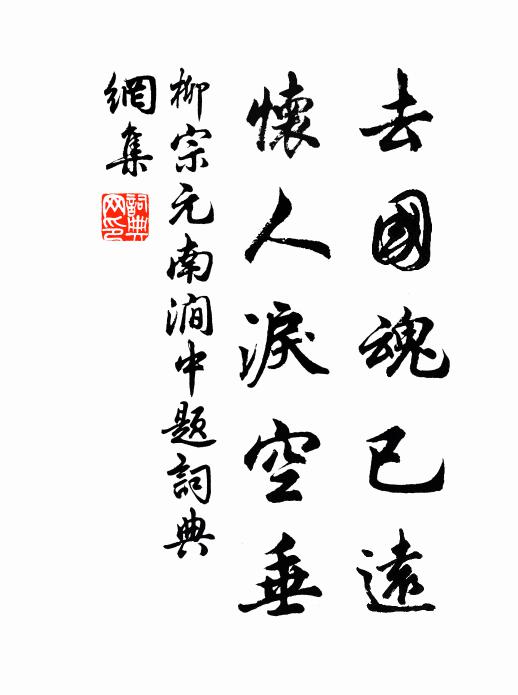 去國魂已遠
懷人淚空垂
柳宗元南澗中題詞典
網集
詞典
网印